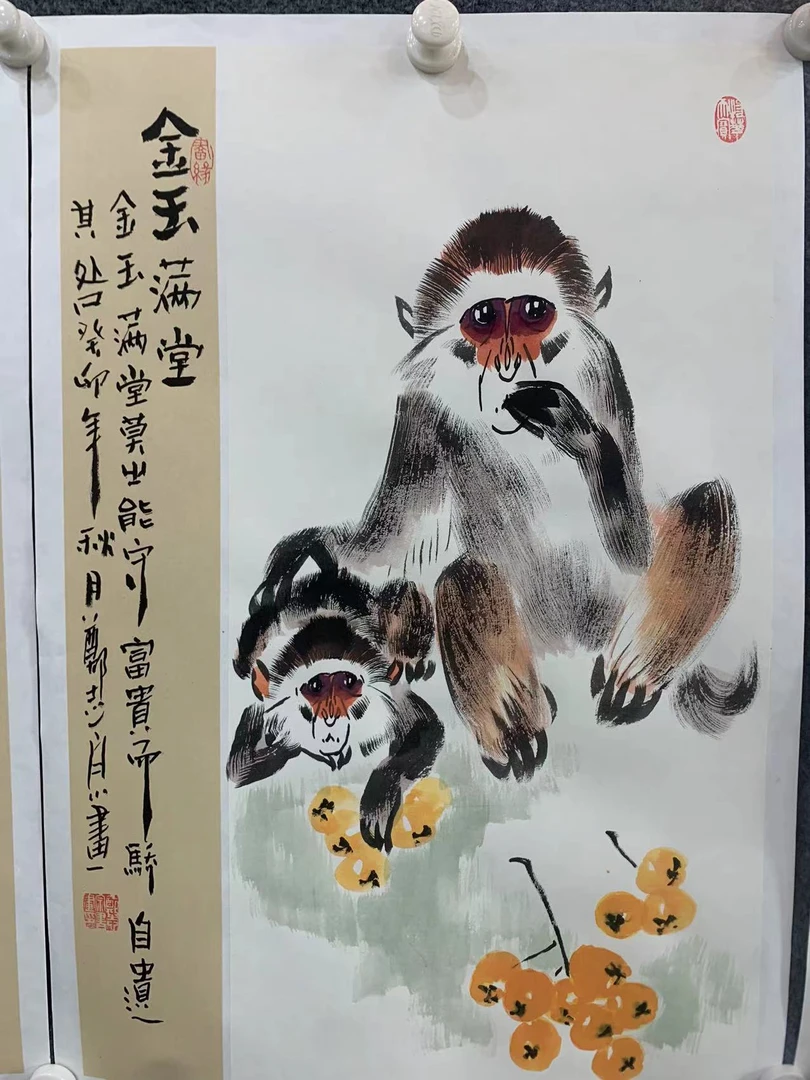 金玉满堂
金玉满堂莫之能守富貴而驕自遺
其咎癸卯年秋月鄭志畫